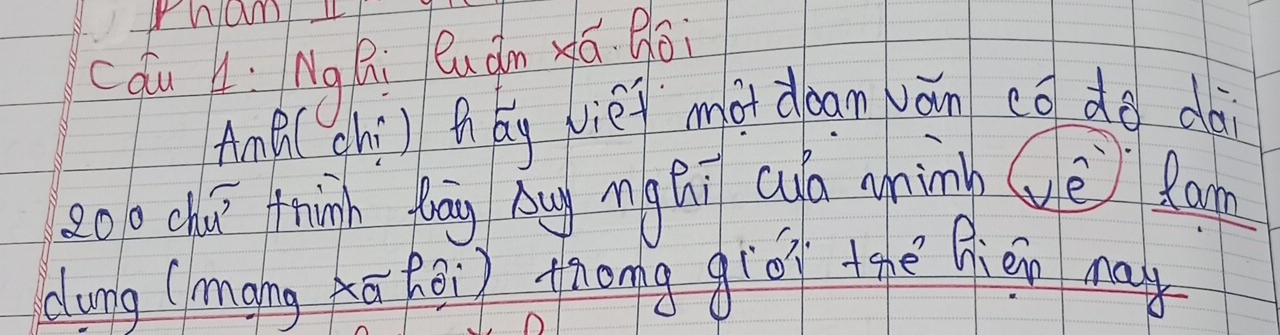 Phần II
Câu 1: Nghị luận xã hội
Anh(chị) hãy viết một đoạn văn có độ dài
200 chữ trình bày suy nghĩ của mình về lạm
dụng (mạng xã hội) trong giới trẻ hiện nay